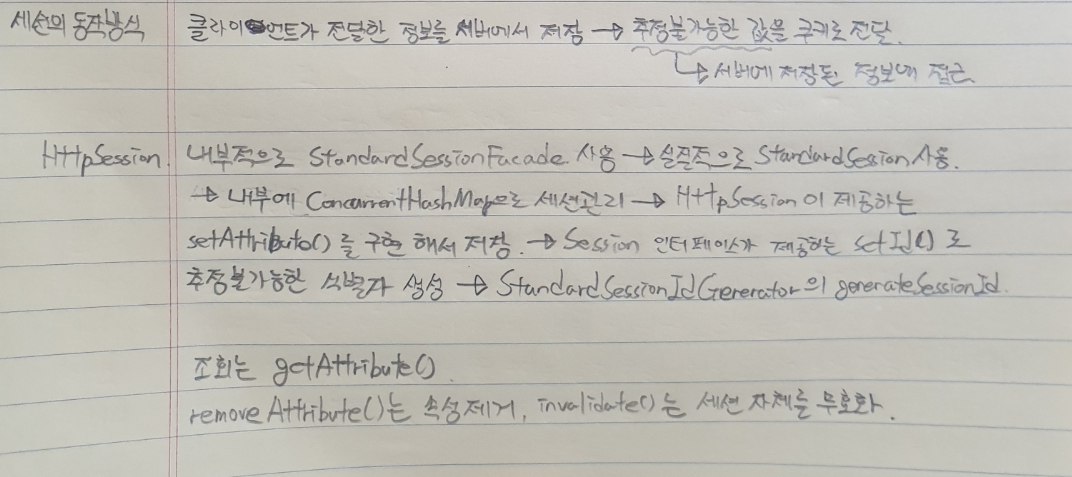 세션의 동작방식 클라이언트가 전달한 정보를 서버에서 저장 → 추정불가능한 값을 쿠키로 전달.
↳ 서버에 저장된 정보에 접근
HttpSession. 내부적으로 StandardSessionFacade 사용 → 실질적으로 StandardSession 사용.
→ 내부에 ConcurrentHashMap으로 세션관리 → HttpSession이 제공하는
setAttributo()를 구현해서 저장. → Session 인터페이스가 제공하는 setId()로
추정불가능한 식별자 생성 → StandardSessionIdGenerator의 generateSessionId.
조회는 getAttribute()
removeAttribute()는 속성제거, invalidate()는 세션 자체를 무효화.